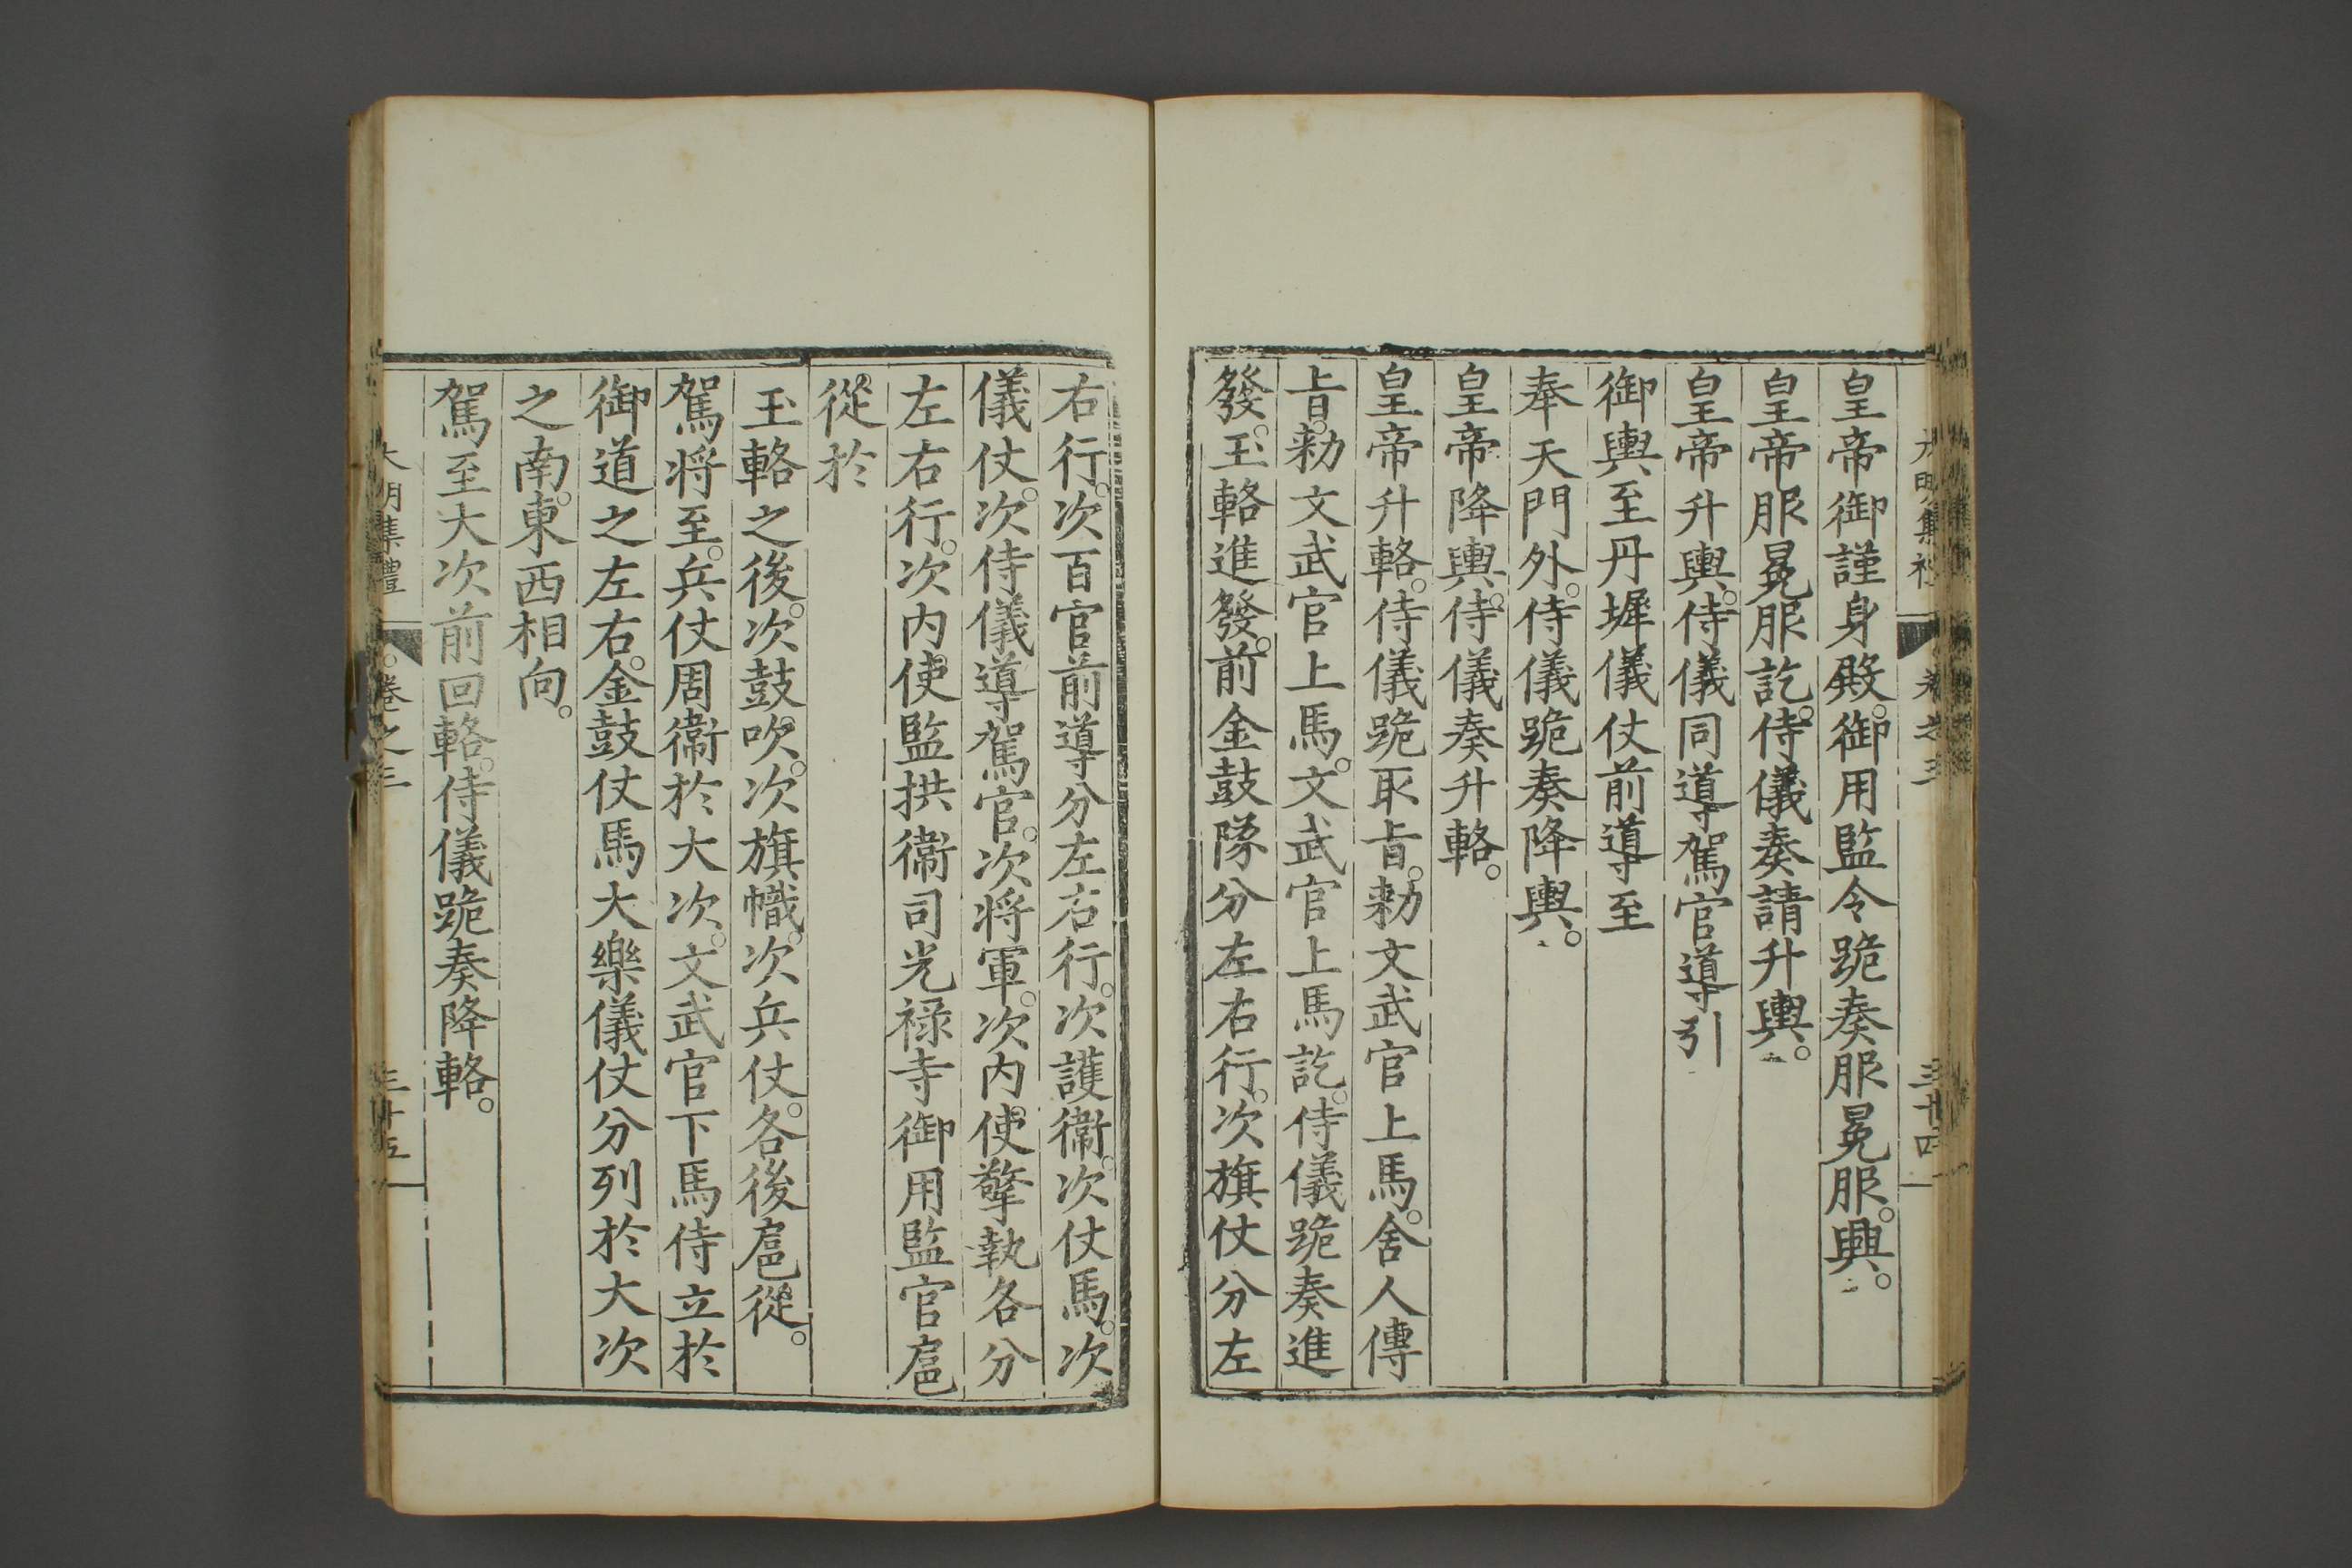 大明集禮 卷之三 三十四
皇帝御謹身殿。御用監令跪奏服冕服。興。
皇帝服冕服訖。侍儀奏請升輿。
皇帝升輿。侍儀同導駕官導引
御輿至丹墀儀仗前導至
奉天門外。侍儀跪奏降輿。
皇帝降輿。侍儀奏升輅。
皇帝升輅。侍儀跪取旨。勑文武官上馬。舍人傳
旨。勑文武官上馬。文武官上馬訖。侍儀跪奏進
發。玉輅進發。前金鼓隊分左右行。次旗仗分左
右行。次百官前導分左右行。次護衞。次仗馬。次
儀仗。次侍儀導駕官。次將軍。次内使擎執各分
左右行。次内使監拱衞司光禄寺御用監官扈
從於
玉輅之後。次鼓吹。次旗幟。次兵仗。各後扈從。
駕將至。兵仗周衞於大次。文武官下馬侍立於
御道之左右。金鼓仗馬大樂儀仗分列於大次
之南。東西相向。
駕至大次前回輅。侍儀跪奏降輅。
大明集禮 卷之三 三十五